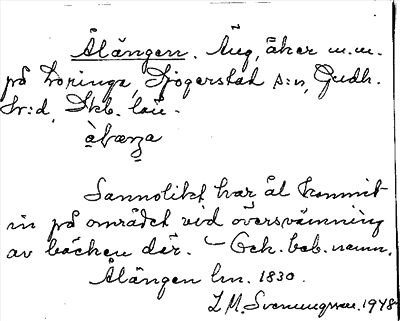 Ålängen. Äng, åker m.m.
på Loringa, Sjogerstad s:n, Gudh.
hr:d, Skb. län.
Sannolikt har ål kommit
in på området vid översvämning
av bäcken där. – Gek. beb. namn.
Ålängen lm. 1830.
L M. Svenungsson. 1948